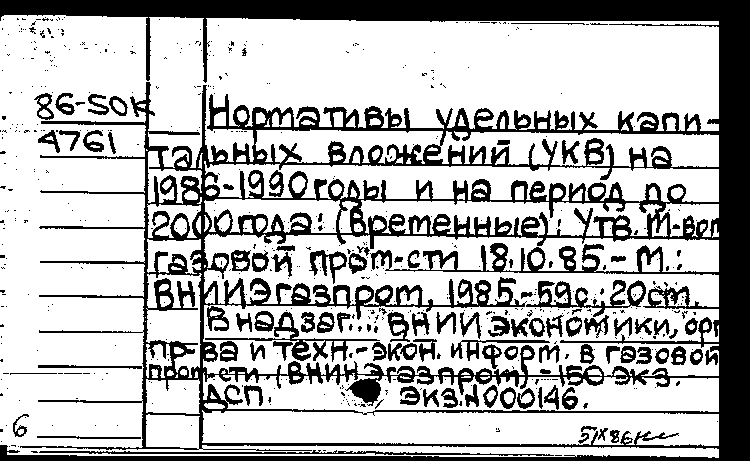 86-50К
4761
Нормативы удельных капи-
тальных вложений (УКВ) на
1986-1990 годы и на период до
2000 года: (Временные): Утв. М-вом
газовой пром-сти 18.10.85.- М.:
ВНИИЭгазпром, 1985.-59с.; 20см.
В надзаг.: ВНИИ экономики, орг
пр-ва и техн.-экон. информ. в газовой
пром-сти. (ВНИИЭгазпром).-150 экз.
ДСП. ЭКЗ.N000146.
6
5/IX 86